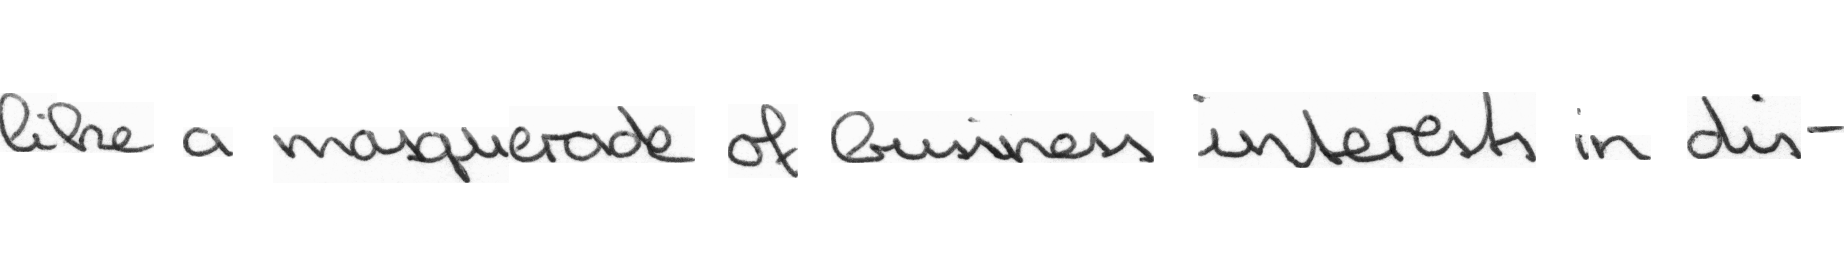 like a masquerade of business interests in dis-